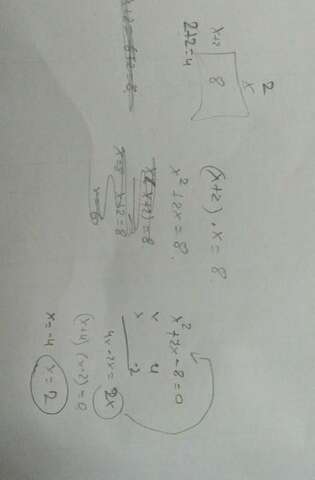 2
x
8
x+2
2+2=4
(x+2) · x = 8.
x² + 2x = 8.
x(x+2) = 8
x=8 x+2=8
x=6
x² + 2x - 8 = 0
x 4
x -2
4x-2x = 2x
(x+4) (x-2) = 0
x = -4 x = 2